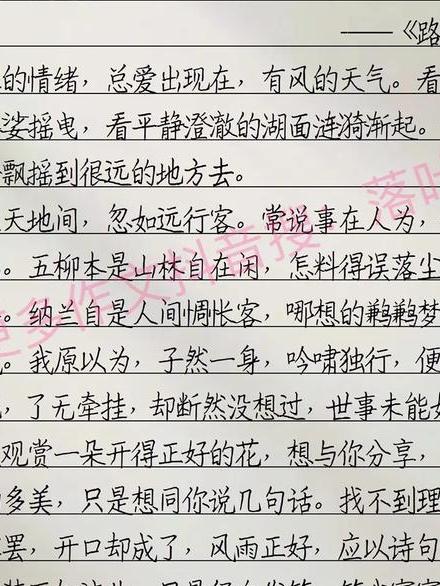 ——《路
的情绪，总爱出现在，有风的天气。看
娑摇曳，看平静澄澈的湖面涟漪渐起。
飘摇到很远的地方去。
天地间，忽如远行客。常说事在人为，
。五柳本是山林自在闲，怎料得误落尘
。纳兰自是人间惆怅客，哪想的鹣鹣梦
。我原以为，孑然一身，吟啸独行，便
，了无牵挂，却断然没想过，世事未能如
观赏一朵开得正好的花，想与你分享，
多美，只是想同你说几句话。找不到理
罢，开口却成了，风雨正好，应以诗句
更多作文抖音搜：落叶